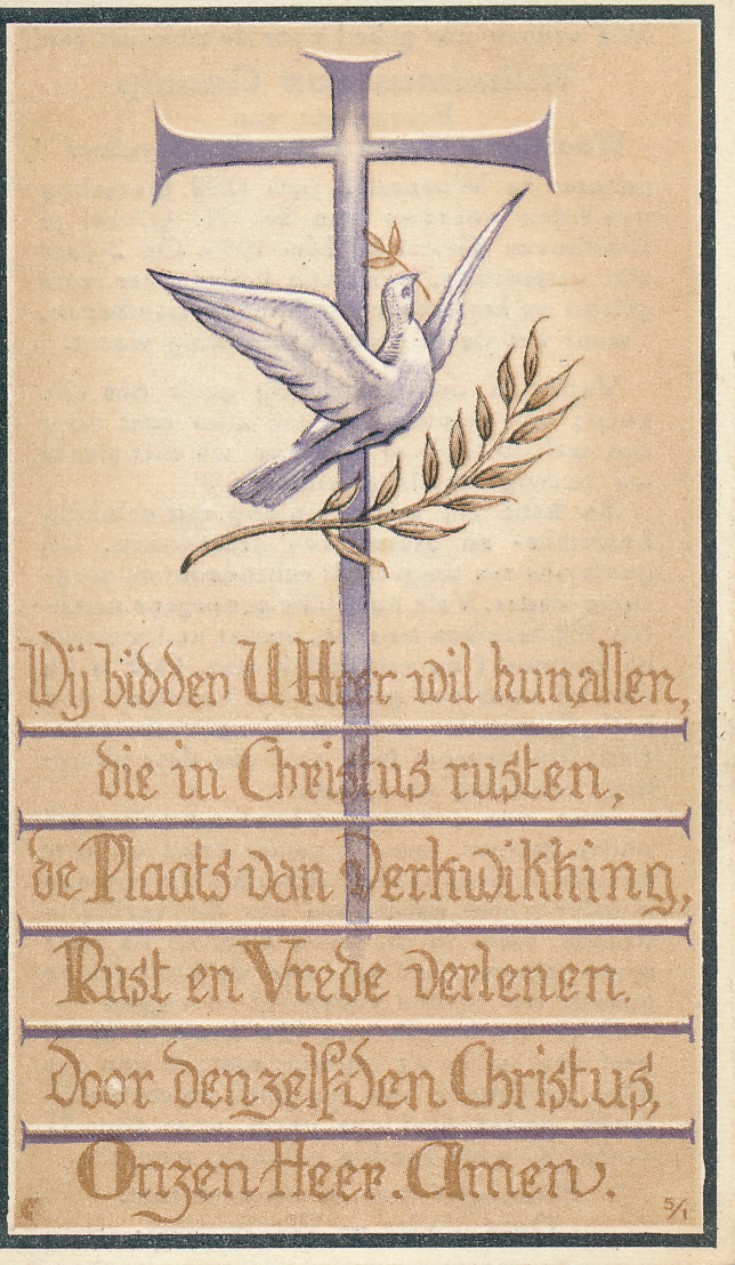 Wij bidden U Heer wil hun allen,
die in Christus rusten,
de Plaats van Verkwikking,
Rust en Vrede verlenen.
Door denzelfden Christus,
Onzen Heer. Amen.
5/1